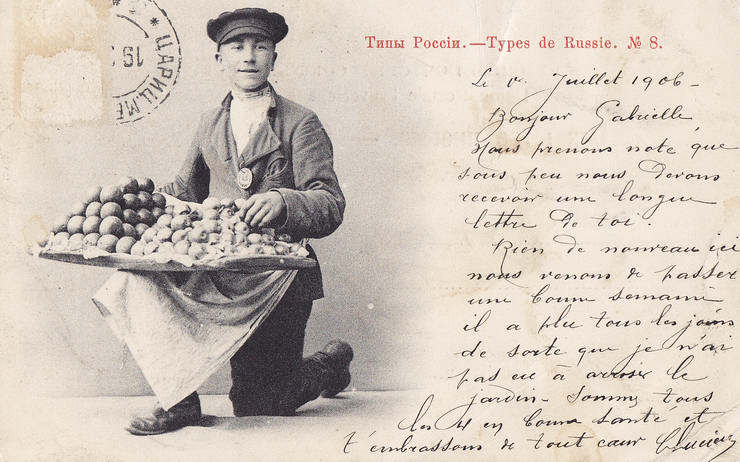 Типы Россіи.—Types de Russie. № 8.
ЦАРИЦ. МЕ
19
Le Juillet 1906-
Bonjour Gabrielle
Nous prenons note que
sous peu nous devons
recevoir une longue
lettre de toi.
Rien de nouveau ici
nous venons de passer
une bonne semaine
il a plu tous les jours
de sorte que je n'ai
pas eu à arroser le
jardin- Somme tous
les 4 en bonne santé et
t'embrassons de tout cœur